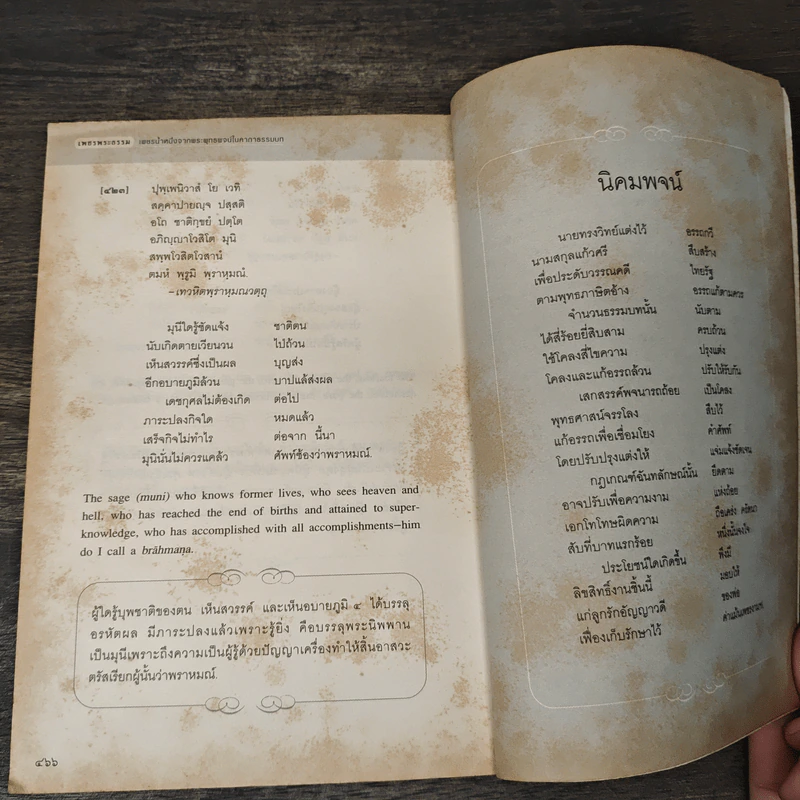 เพชรพระธรรม เพชรน้ำหนึ่งจากพระพุทธพจน์ในคาถาธรรมบท
[๔๒๓] ปุพฺเพนิวาสํ โย เวทิ
สคฺคาปายญฺจ ปสฺสติ
อโถ ชาติกฺขยํ ปตฺโต
อภิญฺญาโวสิโต มุนิ
สพฺพโวสิตโวสานํ
ตมหํ พฺรูมิ พฺราหฺมณํ.
–เทวหิตพฺราหฺมณวตฺถุ
มุนีใดรู้ชัดแจ้ง ชาติตน
นับเกิดตายเวียนวน ไปถ้วน
เห็นสวรรค์ซึ่งเป็นผล บุญส่ง
อีกอบายภูมิล้วน บาปแล้ส่งผล
เดชกุศลไม่ต้องเกิด ต่อไป
ภาระปลงกิจใด หมดแล้ว
เสร็จกิจไม่ทำไร ต่อจาก นี้นา
มุนีนั่นไม่ควรแคล้ว ศัพท์ซ้องว่าพราหมณ์.
The sage (muni) who knows former lives, who sees heaven and
hell, who has reached the end of births and attained to super-
knowledge, who has accomplished with all accomplishments—him
do I call a brāhmaṇa.
ผู้ใดรู้บุพชาติของตน เห็นสวรรค์ และเห็นอบายภูมิ ๔ ได้บรรลุ
อรหัตผล มีภาระปลงแล้วเพราะรู้ยิ่ง คือบรรลุพระนิพพาน
เป็นมุนีเพราะถึงความเป็นผู้รู้ด้วยปัญญาเครื่องทำให้สิ้นอาสวะ
ตรัสเรียกผู้นั้นว่าพราหมณ์.
๔๖๖
นิคมพจน์
นายทรงวิทย์แต่งไว้ อรรถกวี
นามสกุลแก้วศรี สืบสร้าง
เพื่อประดับวรรณคดี ไทยรัฐ
ตามพุทธภาษิตอ้าง อรรถแก้ตามควร
จำนวนธรรมบทนั้น นับตาม
ได้สี่ร้อยยี่สิบสาม ครบถ้วน
ใช้โคลงสี่ไขความ ปรุงแต่ง
โคลงและแก้อรรถล้วน ปรับให้รับกัน
เสกสรรค์พจนารถถ้อย เป็นโคลง
พุทธศาสน์จรรโลง สืบไว้
แก้อรรถเพื่อเชื่อมโยง คำศัพท์
โดยปรับปรุงแต่งให้ แจ่มแจ้งชัดเจน
กฎเกณฑ์ฉันทลักษณ์นั้น ยึดตาม
อาจปรับเพื่อความงาม แห่งถ้อย
เอกโทโทษผิดความ
สับที่บาทแรกร้อย หนึ่งนั้นจงใจ
ประโยชน์ใดเกิดขึ้น พึงมี
ลิขสิทธิ์งานชิ้นนี้ มอบให้
แก่ลูกรักอัญญาวดี ของพ่อ
เฟื่องเก็บรักษาไว้